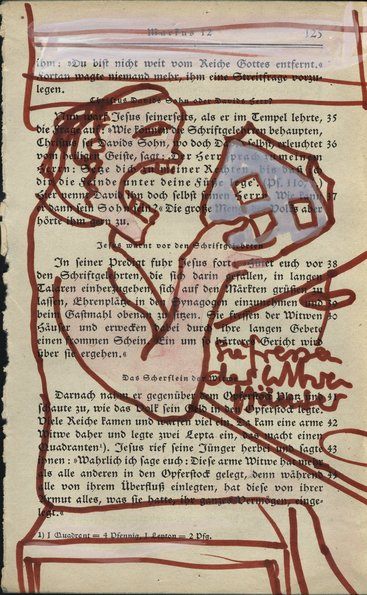 Markus 12 125
ihm: »Du bist nicht weit vom Reiche Gottes entfernt.«
Fortan wagte niemand mehr, ihm eine Streitfrage vorzu-
legen.
Christus Davids Sohn oder Davids Herr?
Nun warf Jesus seinerseits, als er im Tempel lehrte, 35
die Frage auf: »Wie können die Schriftgelehrten behaupten,
Christus Davids Sohn, wo doch David selbst, erleuchtet 36
vom heiligen Geiste, sagt: Der Herr sprach meinem
Herrn: Setze dich meiner Rechten, bis daß ich
dir die Feinde unter deine Füße lege (Ps. 110,
nennt David ihn doch selbst Herrn. Wie kann 37
er dann sein Sohn sein?« Die große Menge Volks aber
hörte ihm gern
Jesus warnt vor den Schriftgelehrten
In seiner Predigt fuhr Jesus fort: »Hütet euch vor 38
den Schriftgelehrten, die sich darin gefallen, in langen
Talaren einherzugehen sich auf den Märkten grüßen zu
lassen, Ehrenplätze in den Synagogen einzunehmen und 39
beim Gastmahl obenan zu sitzen. Sie fressen der Witwen 40
Häuser und erwecken dabei durch ihre langen Gebete
einen frommen Schein. Ein um so härteres Gericht wird
über sie ergehen.«
sie fressen
der Witwen
Häuser
Das Scherflein der Witwe
Darnach nahm er gegenüber dem Opferstock Platz und 41
schaute zu, wie das Volk sein Geld in den Opferstock legte.
Viele Reiche kamen und warfen viel ein. Da kam eine arme 42
Witwe daher und legte zwei Lepta ein, das macht einen
Quadranten¹). Jesus rief seine Jünger herbei und sagte 43
ihnen: »Wahrlich ich sage euch: Diese arme Witwe hat mehr
als alle anderen in den Opferstock gelegt, denn während 44
alle von ihrem Überfluß einlegten, hat diese von ihrer
Armut alles, was sie hatte, ihr ganzes Vermögen, einge-
legt.«
1) 1 Quadrant = 4 Pfennig, 1 Lepton = 2 Pfg.